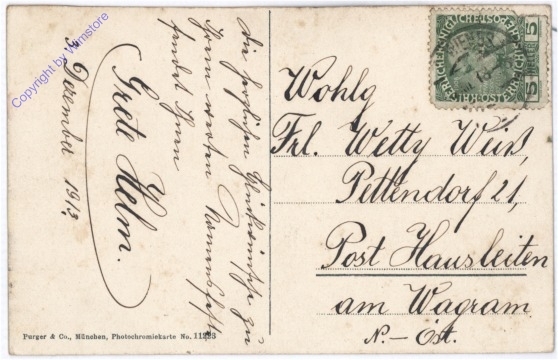 die herzlichsten Glückwünsche zu
Ihrem werten Namensfeste
sendet Ihnen
Grete Helm.
3 Dezember 1913
Wohlg
Frl. Wetty Weiß,
Pettendorf 21,
Post Hausleiten
am Wagram
N.-Öst.
5 5
Purger & Co., München, Photochromiekarte No. 11293
Copyright by Wernstore